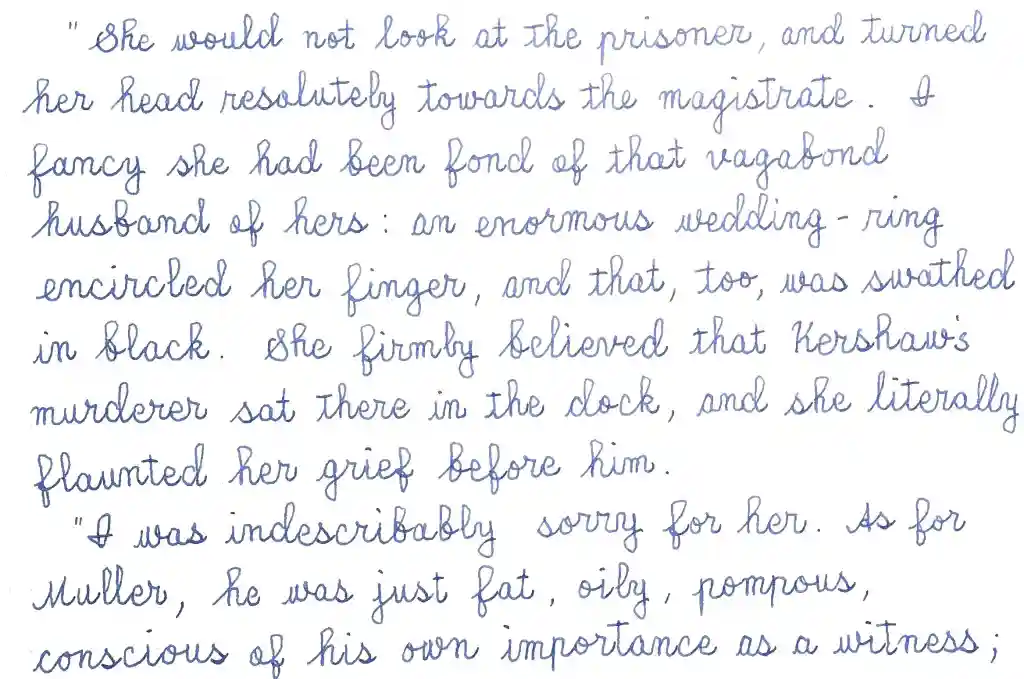 "She would not look at the prisoner, and turned
her head resolutely towards the magistrate. I
fancy she had been fond of that vagabond
husband of hers: an enormous wedding-ring
encircled her finger, and that, too, was swathed
in black. She firmly believed that Kershaw's
murderer sat there in the dock, and she literally
flaunted her grief before him.
"I was indescribably sorry for her. As for
Muller, he was just fat, oily, pompous,
conscious of his own importance as a witness;